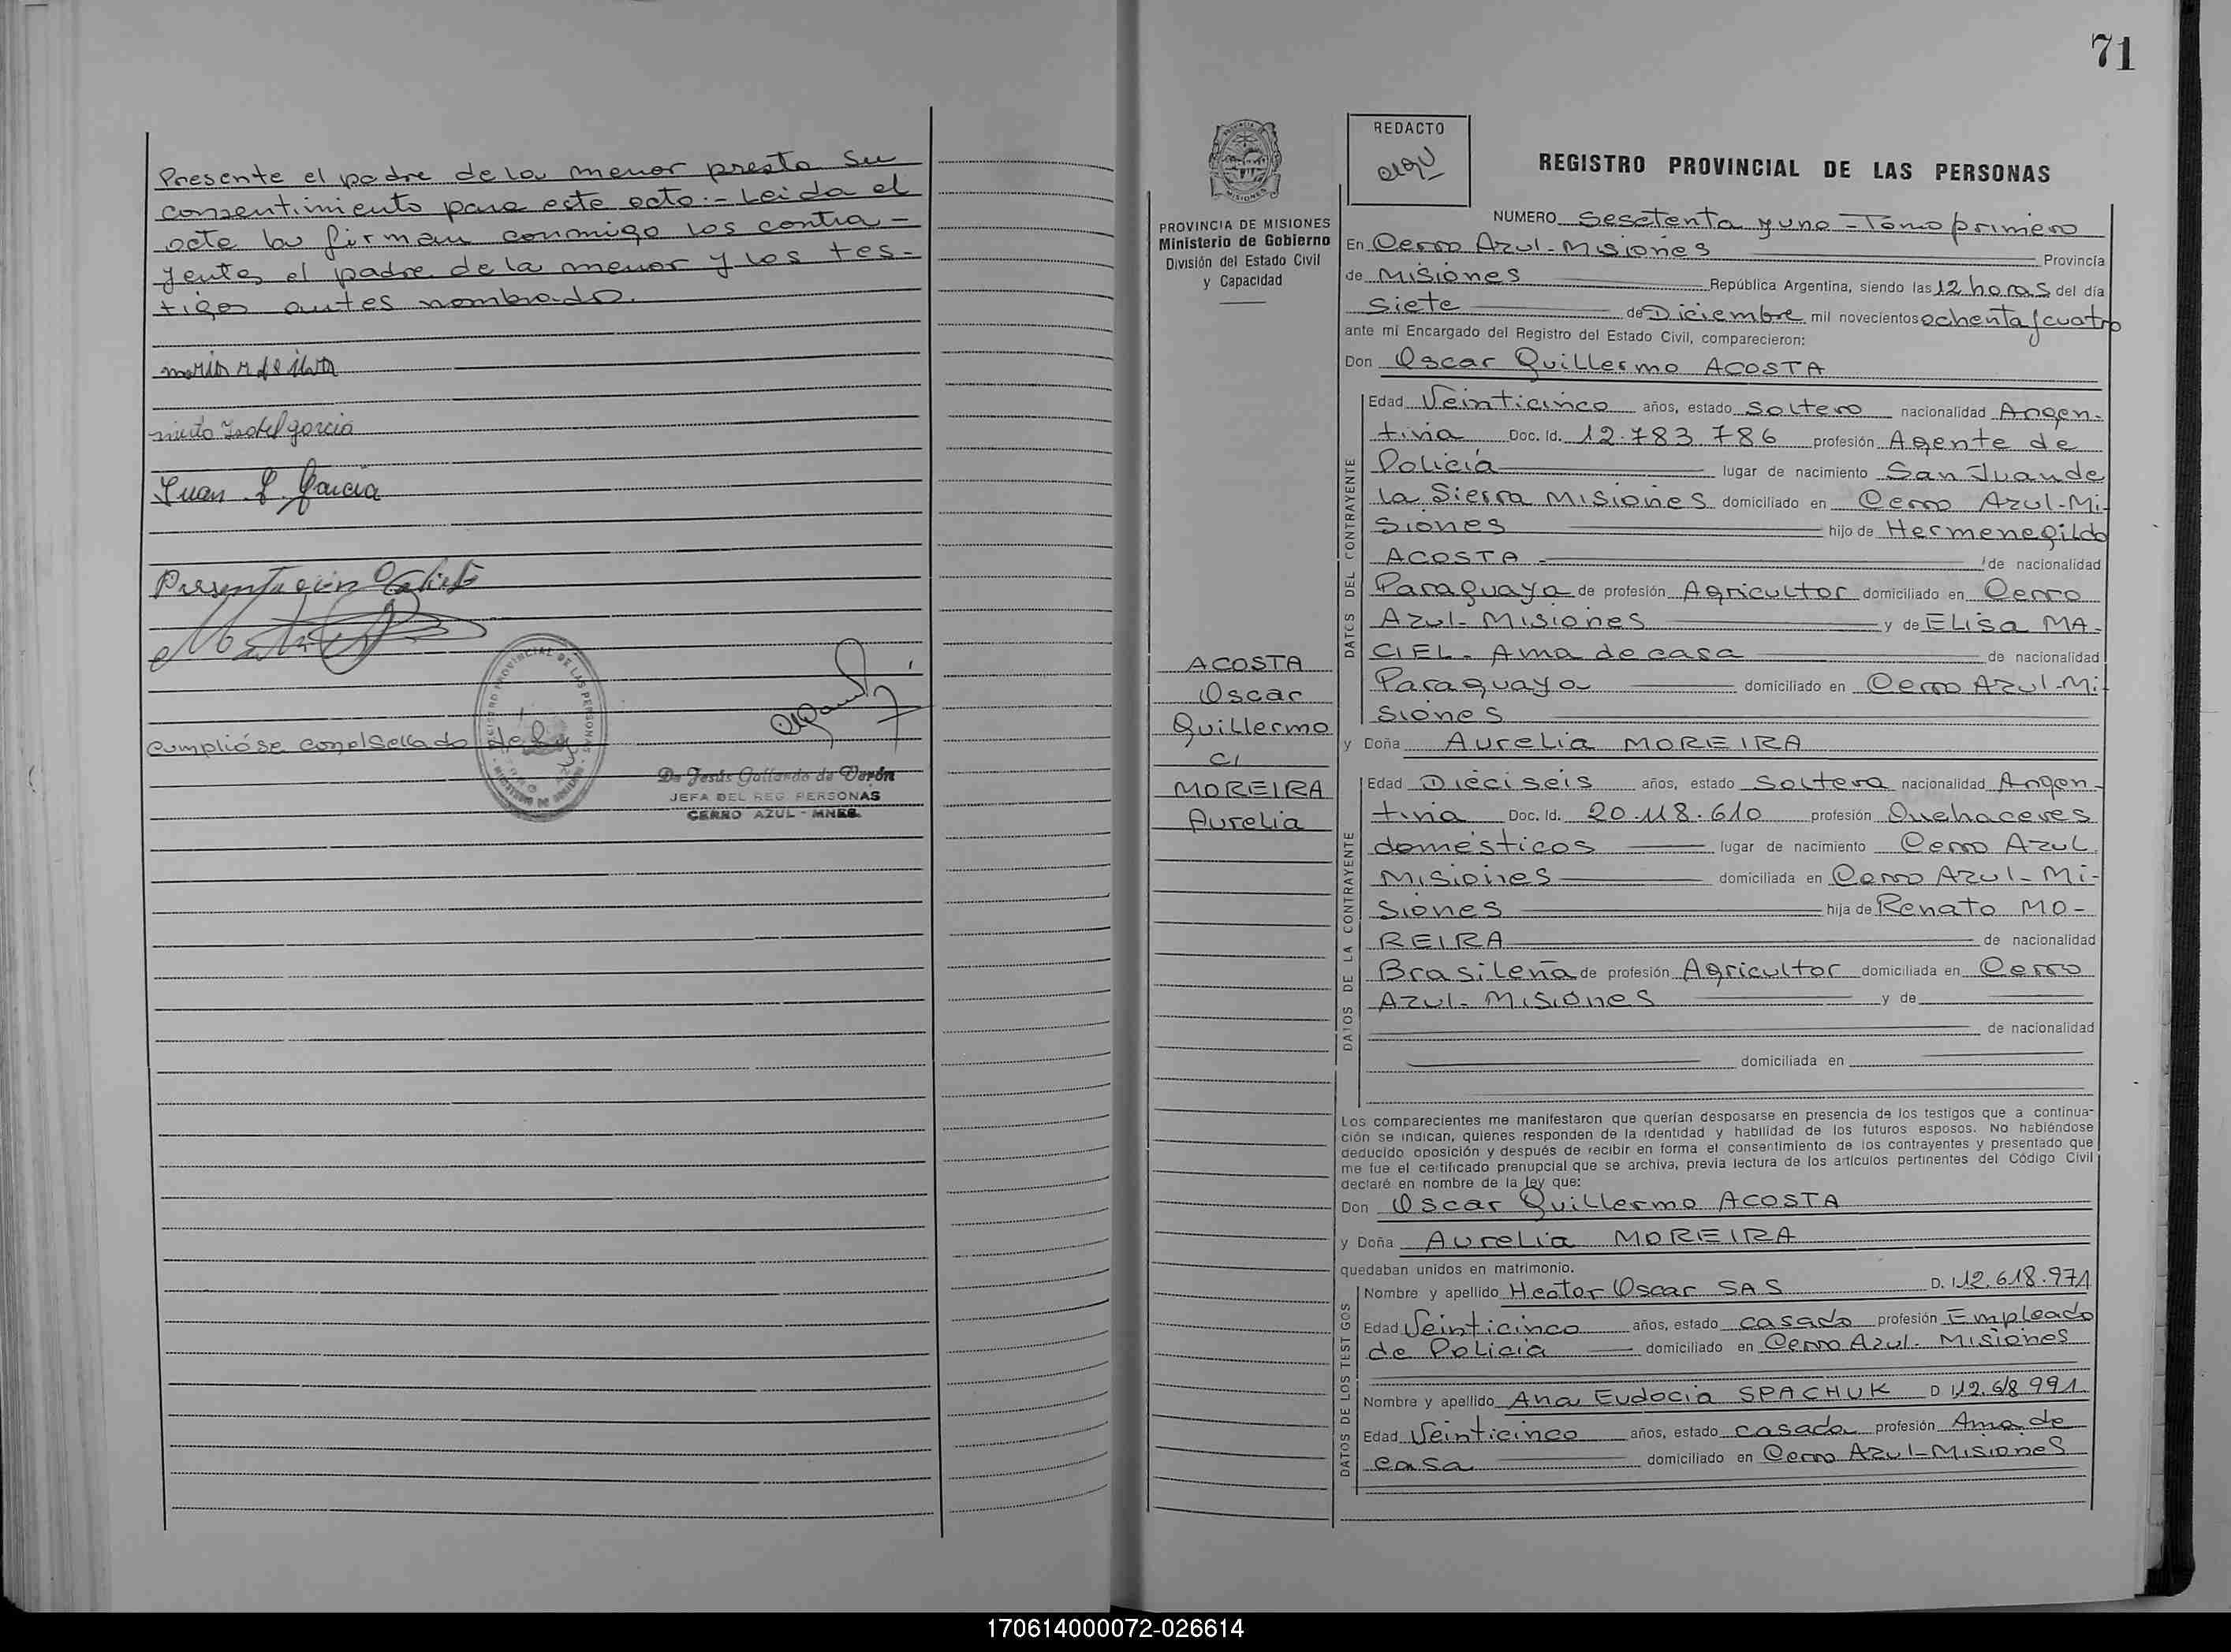 Presente el padre de la menor presta su
consentimiento para este acto.- Leida el
acta la firman conmigo los contra-
yentes el padre de la menor y los tes-
tigos antes nombrado.
Isabel garcia
Juan garcia
Presentacion
Cumplióse con el Sellado de ley
REGISTRO PROVINCIAL DE LAS PERSONAS
Da Jesús Gallardo de Verón
JEFA DEL REG. PERSONAS
CERRO AZUL - MNES.
71
PROVINCIA DE MISIONES
Ministerio de Gobierno
División del Estado Civil
y Capacidad
ACOSTA
Oscar
Guillermo
c/
MOREIRA
Aurelia
REDACTO
REGISTRO PROVINCIAL DE LAS PERSONAS
NUMERO Sesetenta y uno - Tomo primero
En Cerro Azul - Misiones Provincia
de Misiones República Argentina, siendo las 12 horas del día
Siete de Diciembre mil novecientos ochenta y cuatro
ante mi Encargado del Registro del Estado Civil, comparecieron:
Don Oscar Guillermo ACOSTA
DATOS DEL CONTRAYENTE
Edad Veinticinco años, estado Soltero nacionalidad Argen-
tina Doc. Id. 12.783.786 profesión Agente de
Policía lugar de nacimiento San Juan de
la Sierra Misiones domiciliado en Cerro Azul-Mi-
siones hijo de Hermenegildo
ACOSTA - de nacionalidad
Paraguaya de profesión Agricultor domiciliado en Cerro
Azul - Misiones y de Elisa MA-
CIEL - Ama de casa de nacionalidad
Paraguaya domiciliado en Cerro Azul-Mi-
siones
y Doña Aurelia MOREIRA
DATOS DE LA CONTRAYENTE
Edad Dieciseis años, estado Soltera nacionalidad Argen-
tina Doc. Id. 20.118.610 profesión Quehaceres
domésticos lugar de nacimiento Cerro Azul
Misiones domiciliada en Cerro Azul - Mi-
siones hija de Renato MO-
REIRA de nacionalidad
Brasileña de profesión Agricultor domiciliada en Cerro
Azul - Misiones y de
de nacionalidad
domiciliada en
Los comparecientes me manifestaron que querían desposarse en presencia de los testigos que a continua-
ción se indican, quienes responden de la identidad y habilidad de los futuros esposos. No habiéndose
deducido oposición y después de recibir en forma el consentimiento de los contrayentes y presentado que
me fue el certificado prenupcial que se archiva, previa lectura de los artículos pertinentes del Código Civil
declaré en nombre de la ley que:
Don Oscar Guillermo ACOSTA
y Doña Aurelia MOREIRA
quedaban unidos en matrimonio.
DATOS DE LOS TESTIGOS
Nombre y apellido Hector Oscar SAS D. I 12.618.971
Edad Veinticinco años, estado casado profesión Empleado
de Policía domiciliado en Cerro Azul - Misiones
Nombre y apellido Ana Eudocia SPACHUK D I 12.618 991
Edad Veinticinco años, estado casada profesión Ama de
casa domiciliado en Cerro Azul-Misiones
170614000072-026614